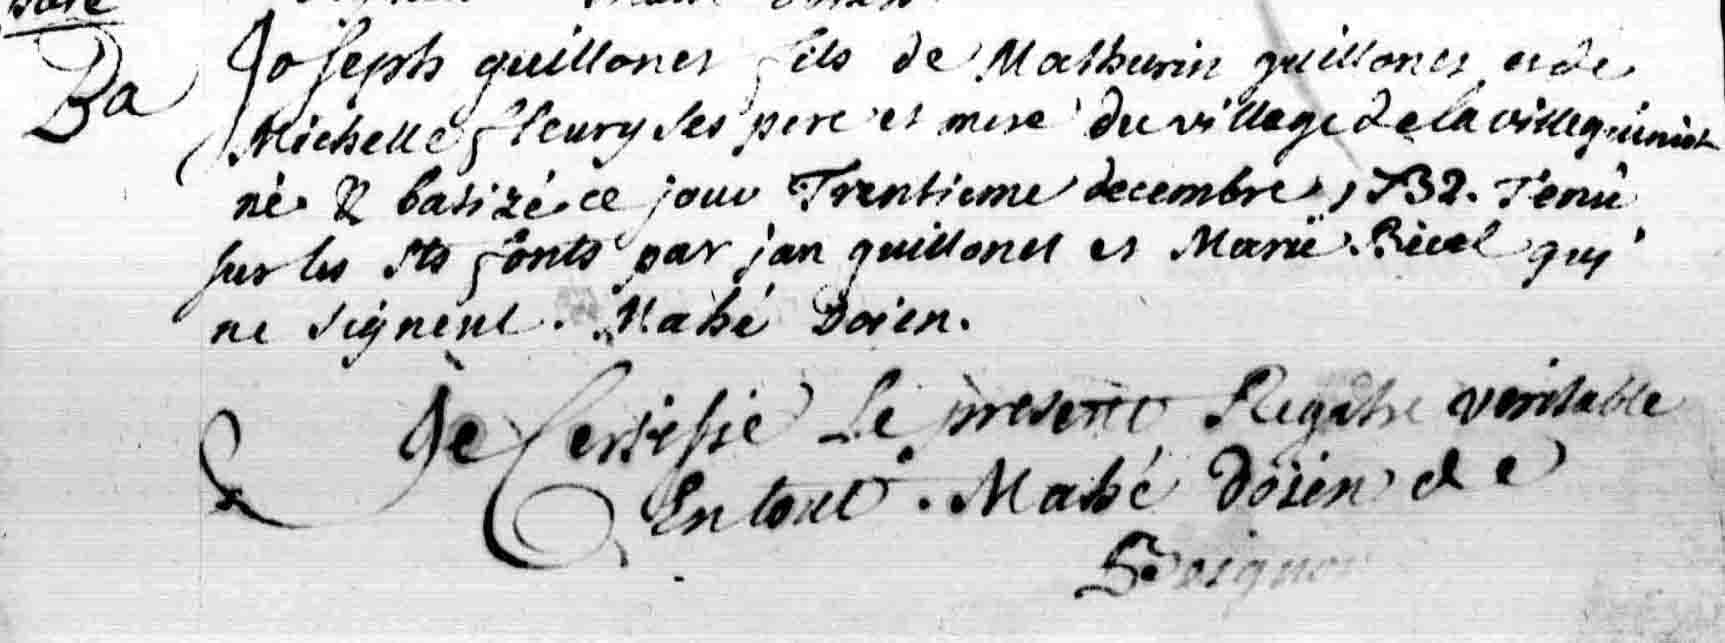 Ba
Joseph guillonet fils de Mathurin guillonet et de
Michelle fleury ses pere et mere du village de la
né & batizé ce jour Trentieme decembre 1732. Tenû
sur les sts fonts par jan guillonet et Marie qui
ne signent. Mahé Doien.
Je Certifie Le present Registre veritable
En tout. Mahé Doien de